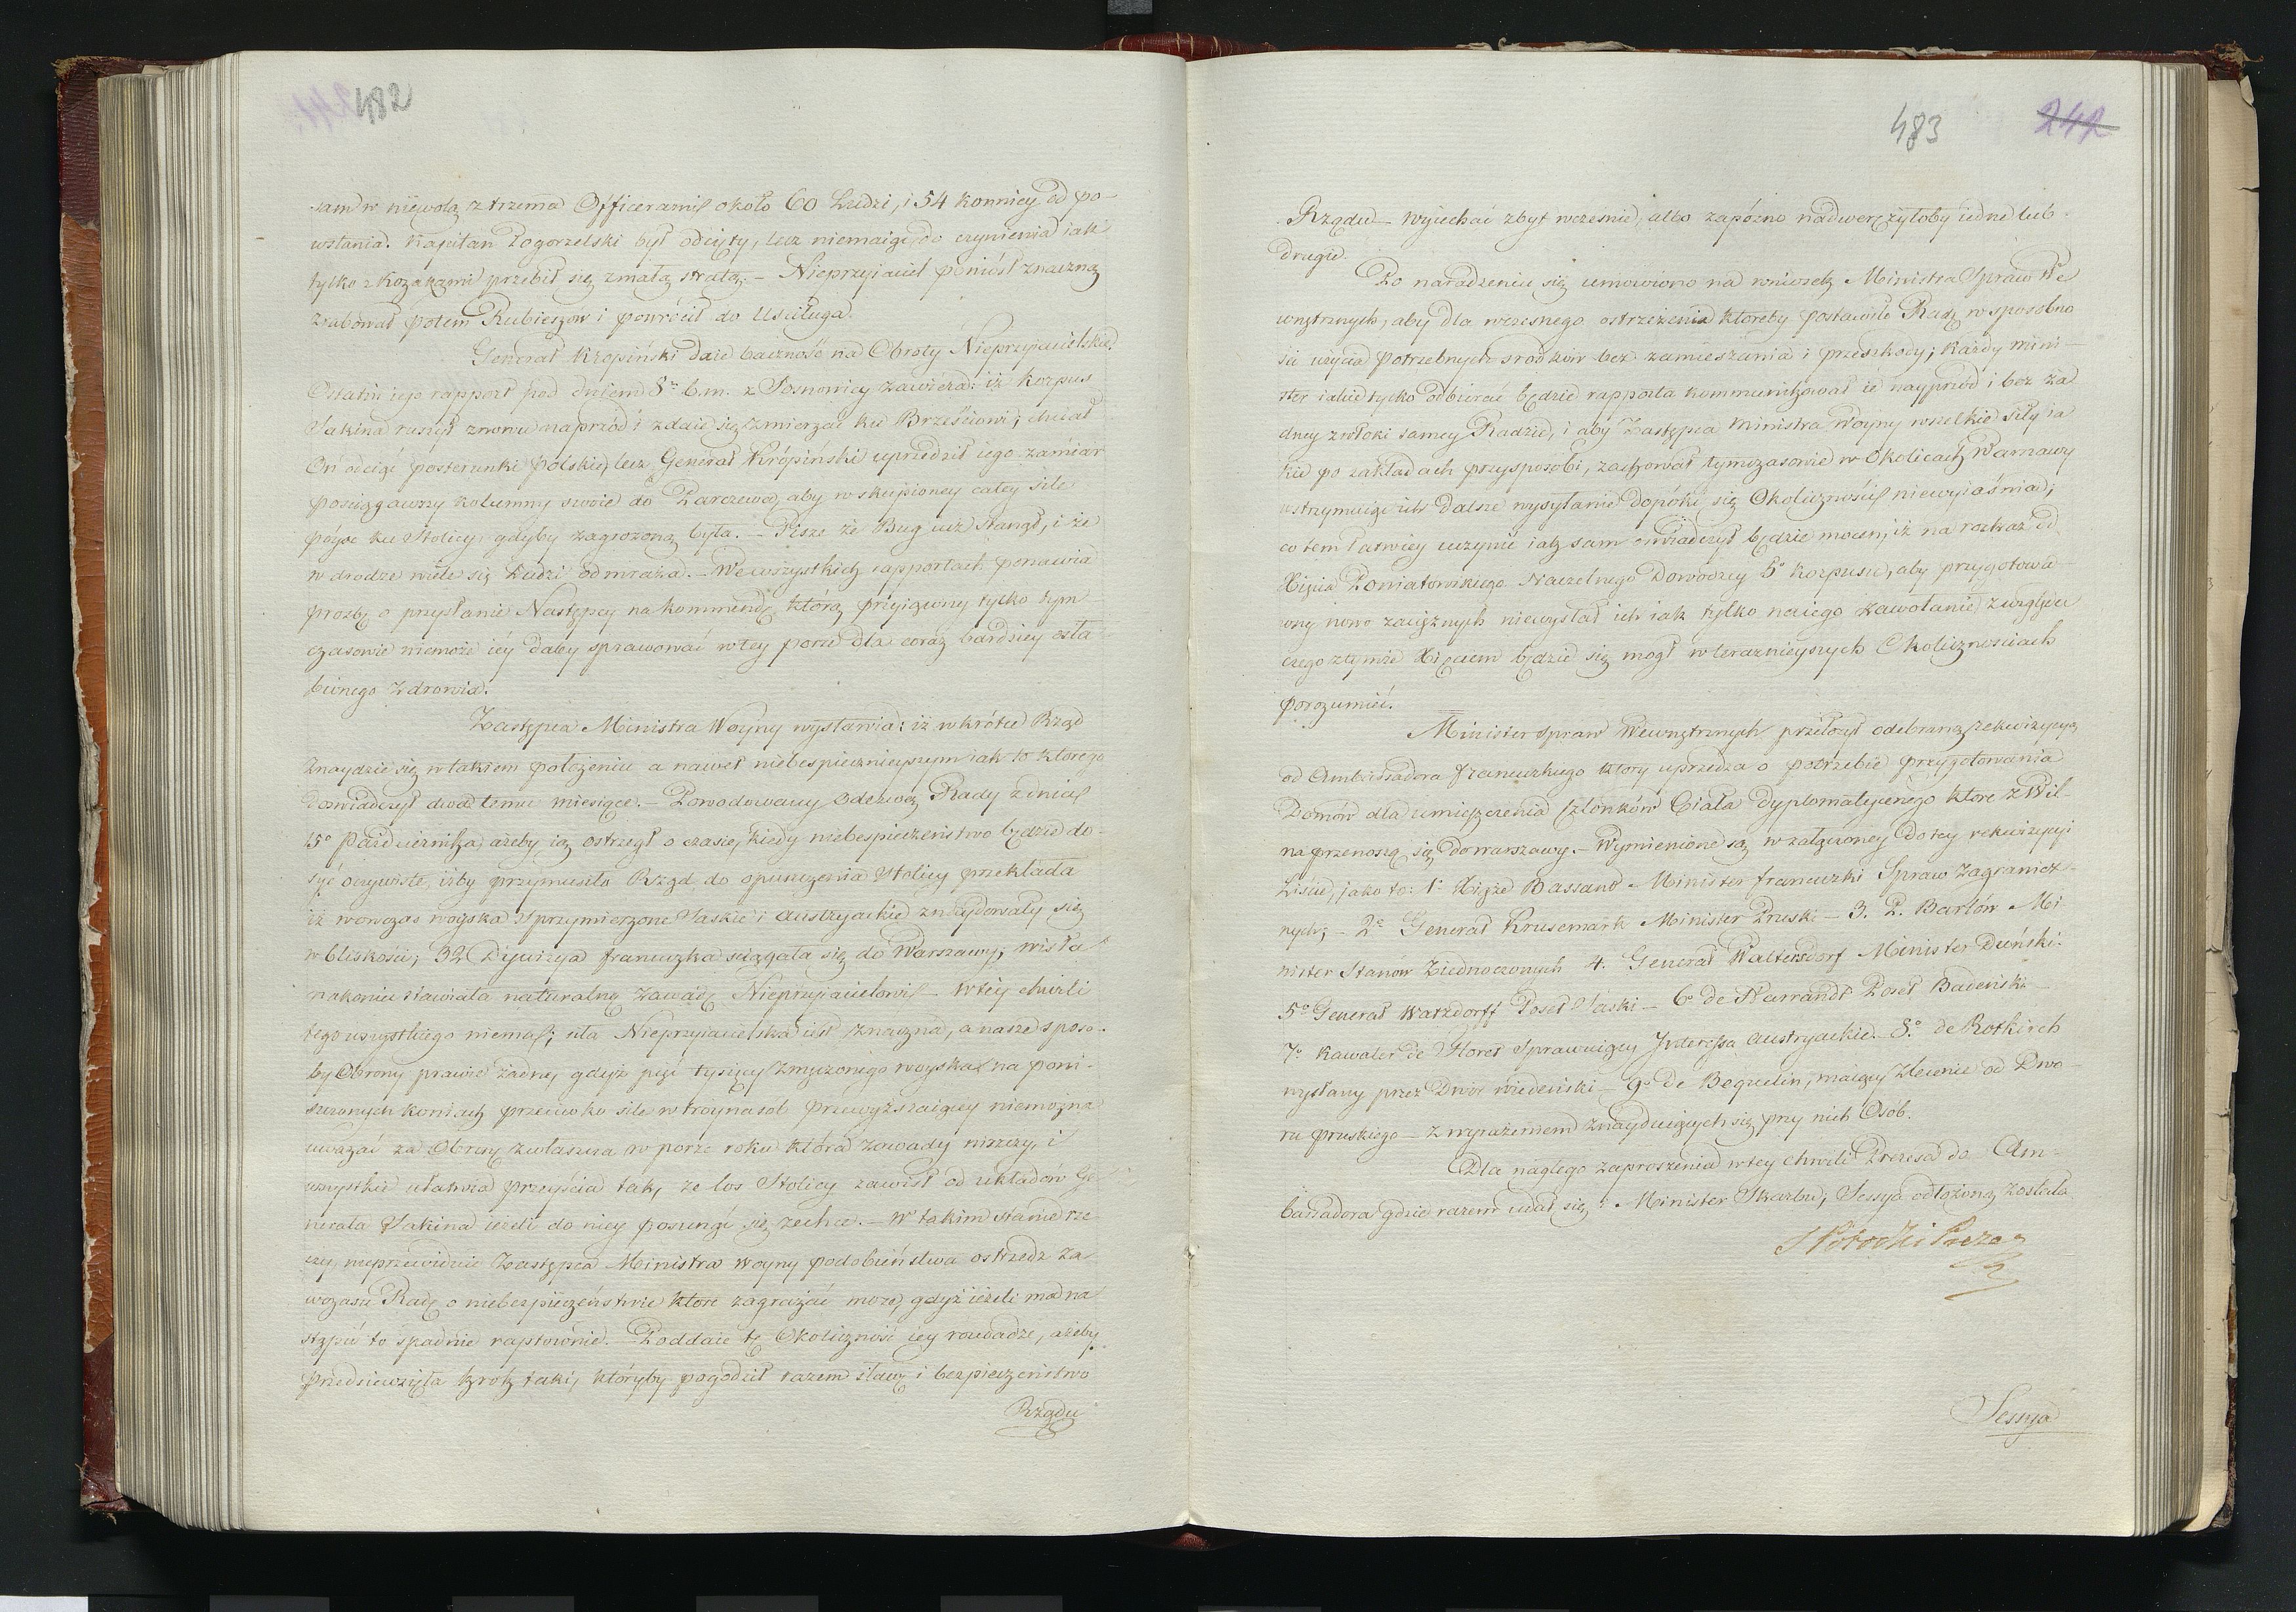 482
sam w niewolą z trzema Officerami około 60 Ludzi, i 54 konnicy od po-
wstania. Kapitan Pogorzelski był odcięty, lecz niemaiąc do czynienia iak
tylko z Kozakami przebił się z małą stratą. — Nieprzyiaciel poniósł znaczną
zrabował potem Rubieszow i powrócił do Usciługa.
Generał Kropiński daie baczność na Obroty Nieprzyiacielskie.
Ostatni iego rapport pod dniem 8º b.m. z Sosnowicy zawiera: iż korpus
Sakina ruszył znowu naprzód i zdaie się zmierzać ku Brześciowi; chciał
On odciąć posterunki polskie, lecz Generał Kropiński uprzedził iego zamiar
pościągawszy kolumny swoie do Parczewa, aby w skupioney całey sile
póyść ku Stolicy, gdyby zagrożoną była. — Pisze że Bug iuż stanął, i że
w drodze wiele się Ludzi odmraża. — We wszystkich rapportach ponawia
prozbę o przysłanie Następcy na kommendę którą przyiąwszy tylko tym-
czasowie niemoże iéy daléy sprawować w tey porze dla coraz bardziey osła-
bionego zdrowia.
Zastępca Ministra Woyny wystawia: iż wkrótce Rząd
znaydzie się w takiem położeniu a nawet niebespiecznieyszym iak to którego
doswiadczył dwa temu miesiące. — Powodowany Odezwą Rady z dnia
15º Października, ażeby ią ostrzegł o czasie, kiedy niebespieczeństwo będzie do-
syć oczywiste, iżby przymusiło Rząd do opuszczenia Stolicy przekłada
iż wowczas woyska Sprzymierzone Saskie i Austryackie znaydowały się
w bliskości; 32 Dywizya francuzka sciągała się do Warszawy; wisła
nakoniec stawiała naturalną zawadę Nieprzyiacielowi — W tey chwili
tego wszystkiego niemasz; siła Nieprzyiacielska iest znaczna, a nasze sposo-
by Obrony prawie żadne, gdyż pięć tysięcy zmęczonego woyska na poni-
szczonych koniach przeciwko sile w tróynasób przewyższaiącey niemożna
uważać za Obronę zwłaszcza w porze roku która zawady niszczy, i
wszystkie ułatwia przeyścia tak, że los Stolicy zawisł od układów Ge-
nerała Sakina ieżeli do niey posunąć się zechce. — W takim stanie rze-
czy nieprzewiduie Zastępca Ministra woyny podobieństwa ostrzedz za-
wczasu Radę o niebezpieczeństwie które zagrażać może, gdyż ieżeli ma na-
stąpić to spadnie raptownie. — Poddaie tę Okoliczność iey rozwadze, ażeby
przedsięwzięła krok taki, któryby pogodził razem sławę i bezpieczeństwo
Rządu
483 242
Rządu — Wyiechać zbyt wcześnie, albo zapóźno nadwerężyłoby iedne lub
drugie.
Po naradzeniu się umówiono na wniosek Ministra Spraw We-
wnętrznych, aby dla wczesnego ostrzeżenia któreby postawiło Radę w sposobno-
ści użycia potrzebnych srodków bez zamieszania i przeszkody; każdy Mini-
ster iakie tylko odbierać będzie rapporta kommunikował ie nayprzód i bez ża-
dney zwłoki samey Radzie, i aby Zastępca Ministra Woyny wszelkie siły ia-
kie po zakładach przysposobi, zachował tymczasowie w Okolicach Warszawy
wstrzymuiąc ich dalsze wysyłanie dopóki się Okoliczności niewyiaśnią;
co tem łatwiey uczynić iak sam oświadczył będzie mocen, iż ma rozkaz od
Xięcia Poniatowskiego Naczelnego Dowodzcy 5º Korpusu, aby przygotowa-
wszy nowo zaciężnych niewysłał ich iak tylko na iego zawołanie, z względu
czego z tymże Xięciem będzie się mógł w teraznieyszych Okolicznościach
porozumieć.
Minister Spraw Wewnętrznych przełożył odebraną rekwizycyą
od Ambassadora Francuzkiego który uprzedza o potrzebie przygotowania
Domów dla umieszczenia Członków Ciała Dyplomatycznego które z Wil-
na przenoszą się do warszawy. — Wymienione są w załączoney do tey rekwizycyi
Liście, jako to: 1º Xiąże Bassano Minister francuzki Spraw Zagranicz-
nych; — 2º Generał Krusemark Minister Pruski — 3. P. Barlow Mi-
nister Stanów Ziednoczonych 4. Generał Waltersdorf Minister Duński.
5º Generał Watzdorff Poseł Saski — 6º de Harrandt Poseł Badeński —
7º Kawaler de Floret Sprawuiący Interessa Austryackie. — 8º de Rotkirch
wysłany przez Dwór wiedeński — 9º de Bequelin, maiący zlecenie od Dwo-
ru pruskiego — z wyrażeniem znayduiących się przy nich Osób.
Dla nagłego zaproszenia w tey chwili Prezesa do Am-
bassadora gdzie razem udał się i Minister Skarbu; Sessya odłożoną została
S Potocki Prezes
Sessya